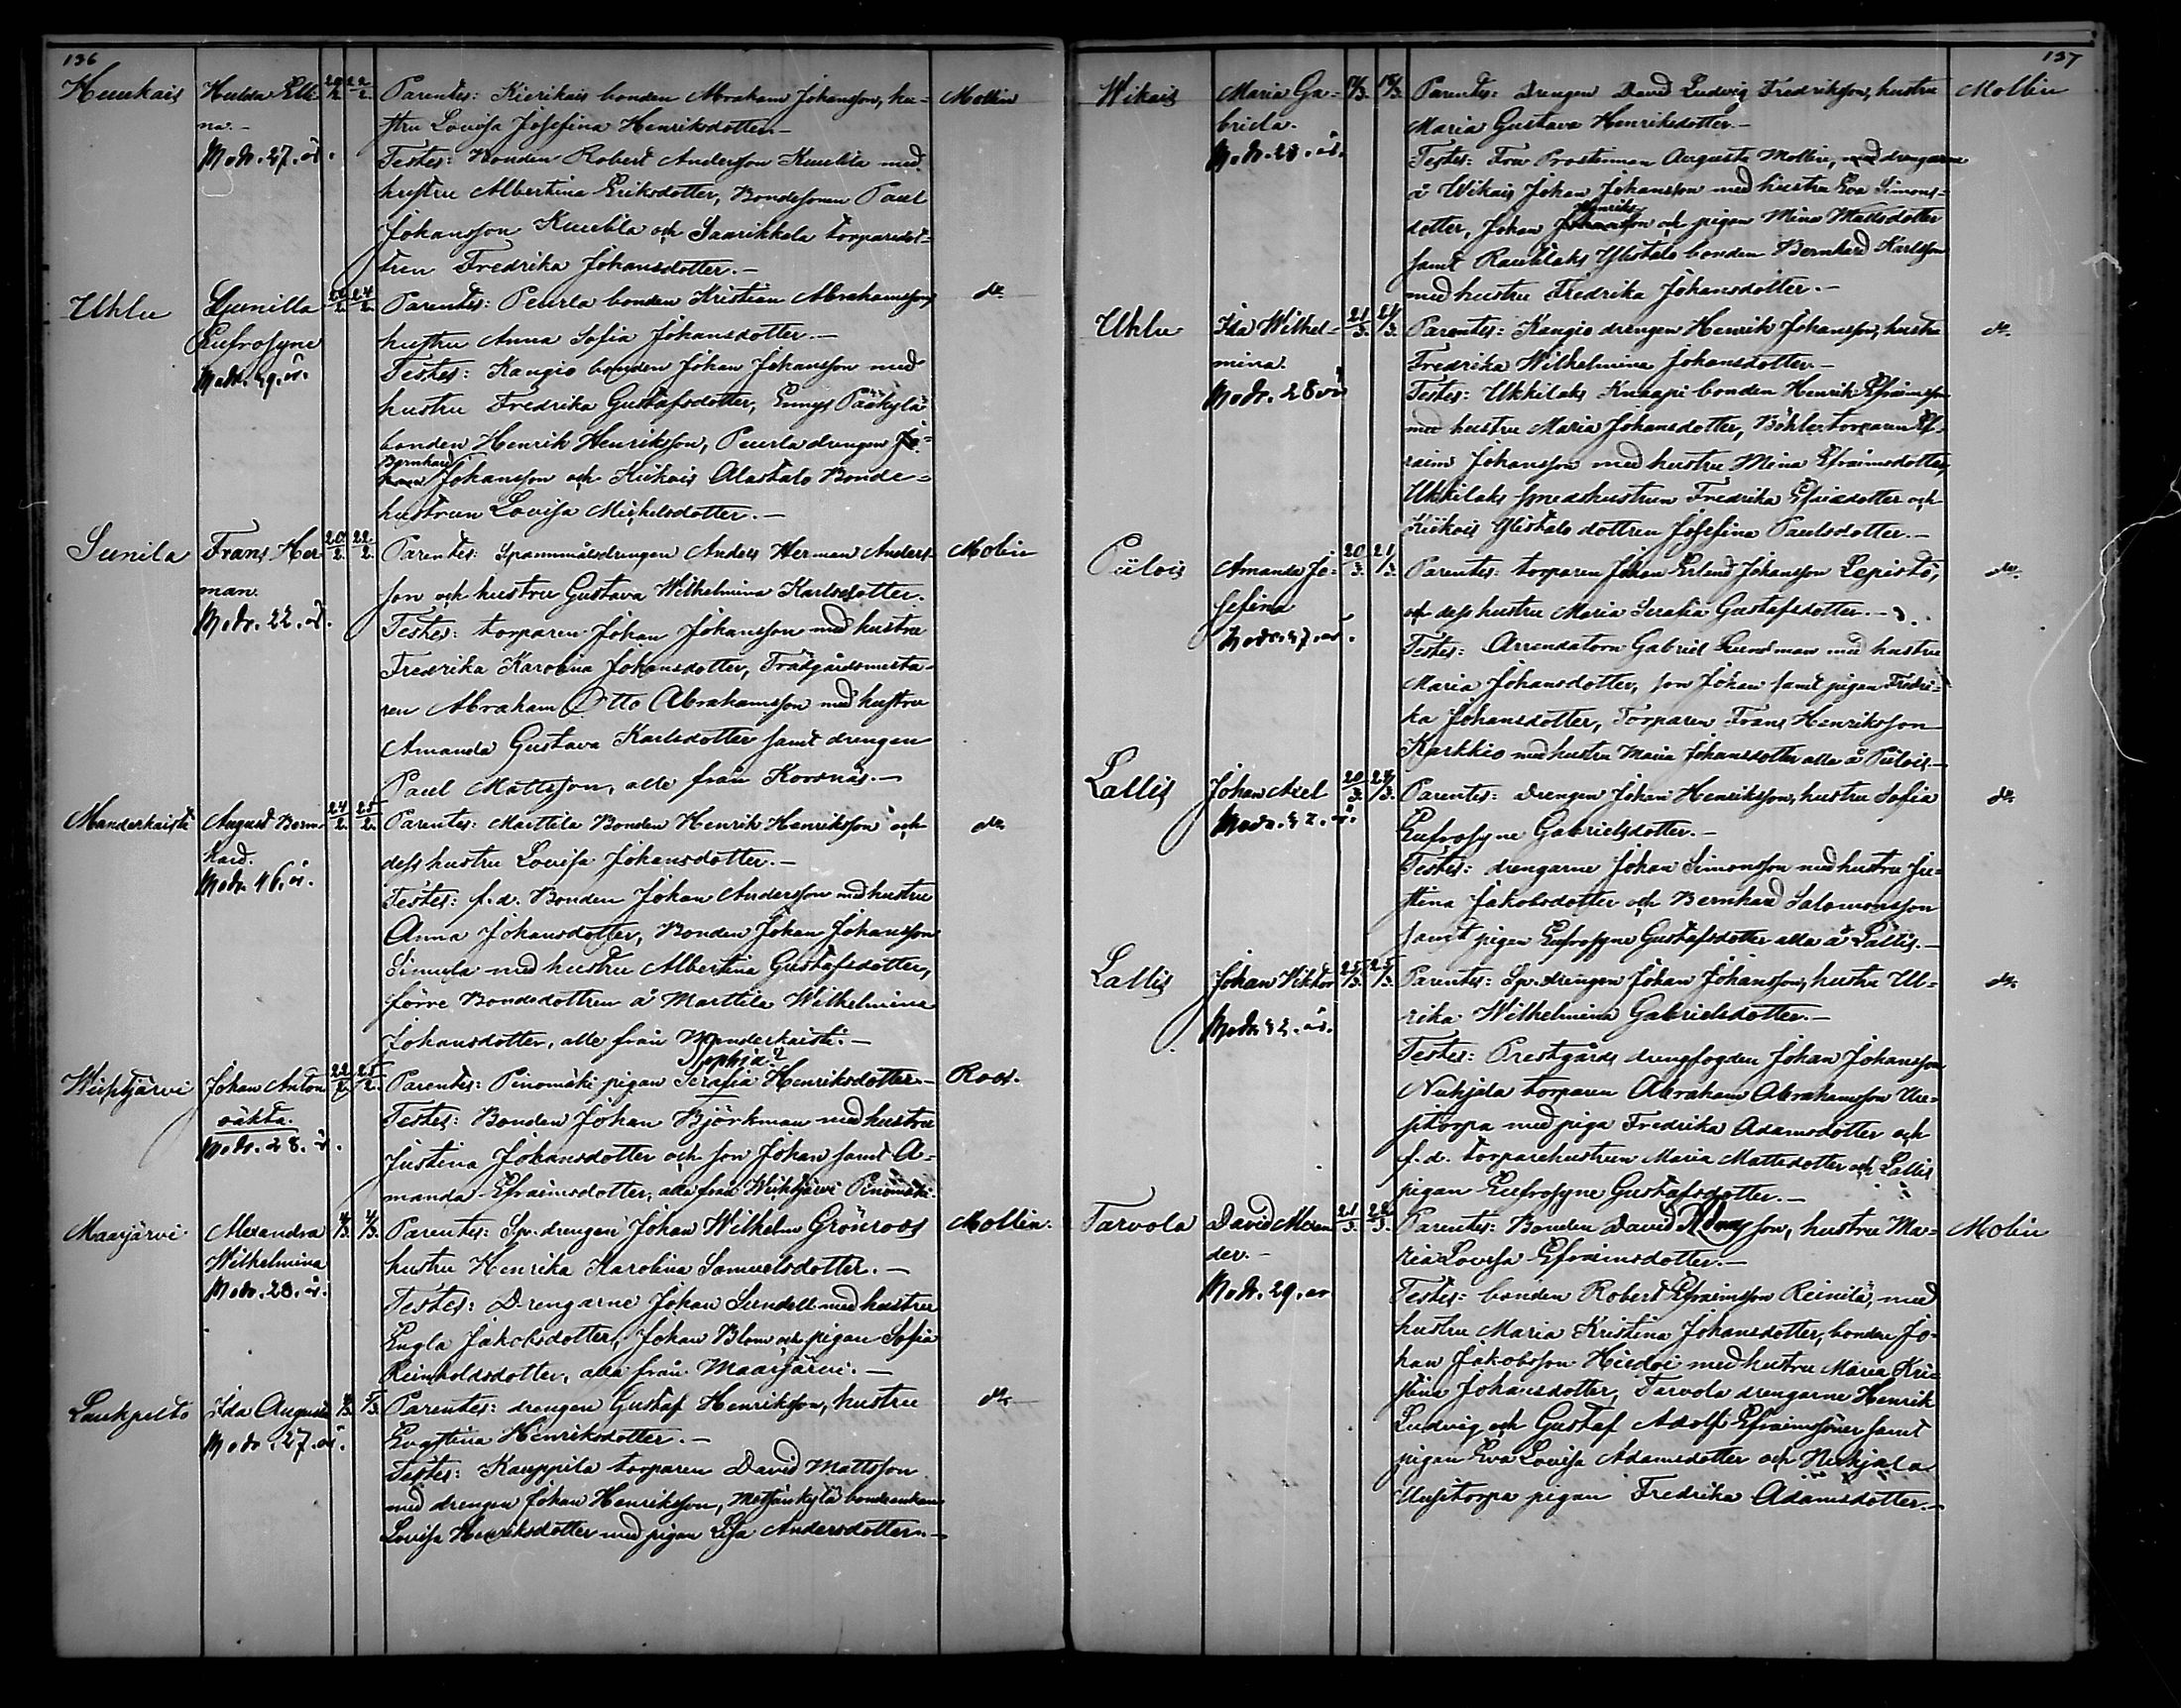 136
Huukais Hulda Eli- 20/2 22/2 Parentes: Kierikais bonden Abraham Johansson, hu- Mollin
na.- stru Lovisa Josefina Henriksdotter.-
Modr. 27. år. Testes: Bonden Robert Andersson Kuubila med
hustru Albertina Eriksdotter, Bondesonen Paul
Johansson Kuubila och Saarikkala torparedot-
tren Fredrika Johansdotter.-
Uhlu Gunilla 22/2 24/2 Parentes: Peurla bonden Kristian Abrahamsson, do
Eufrosyne hustru Anna Sofia Johansdotter.-
Modr. 29. år. Testes: Kangio bonden Johan Johansson med
hustru Fredrika Gustafsdotter, Ennys Pääkylä
bonden Henrik Henriksson, Peurla drengen Jo-
Bernhard
han Johansson och Kiikois Alastalo Bonde-
hustrun Lovisa Michelsdotter.-
Sunila Frans Her- 20/2 22/2 Parentes: Spannmålsdrengen Anders Herman Anders- Molin
man. son och hustru Gustava Wilhelmina Karlsdotter.
Modr. 22. år. Testes: torparen Johan Johansson med hustru
Fredrika Karolina Johansdotter, Trädgårdsmesta-
ren Abraham Otto Abrahamsson med hustru
Amanda Gustava Karlsdotter samt drengen
Paul Mattsson, alle från Korsnäs.-
Manderkaista August Bern- 24/2 25/2 Parentes: Marttila Bonden Henrik Henriksson och do
hard. dess hustru Lovisa Johansdotter.-
Modr. 46. år. Testes: f.d. Bonden Johan Andersson med hustru
Anna Johansdotter, Bonden Johan Johansson
Simula med hustru Albertina Gustafsdotter,
förre Bondedottren å Marttila Wilhelmina
Johansdotter, alle från Manderkaista.-
Sophia?
Wiiksjärvi Johan Anton 22/2 25/2 Parentes: Pinomäki pigan Serafia Henriksdotter.- Ros.
oäkta. Testes: Bonden Johan Björkman med hustru
Modr. 28. år. Justina Johansdotter och son Johan samt A-
manda Efraimsdotter, alla från Wiiksjärvi Pinomäki.
Maarjärvi Alexandra 4/3 4/3. Parentes: Sp. drengen Johan Wilhelm Grönroos Mollin.
Wilhelmina hustru Henrika Karolina Samuelsdotter.-
Modr. 28. år. Testes: Drengarne Johan Lundell med hustru
Engla Jakobsdotter, Johan Blom och pigan Sofia
Reinholdsdotter, alla från Maarjärvi.-
Laukpelto Ida Augusta 4/3 5/3. Parentes: drengen Gustaf Henriksson, hustru do
Modr. 27. år. Evastina Henriksdotter.-
Testes: Kauppila torparen David Mattsson
med drengen Johan Henriksson, Metsänkylä bondeenkan
Lovisa Henriksdotter med pigan Lisa Andersdotter.-
137
Wikais Maria Ga- Parentes: Drengen David Ludvig Fredriksson, hustru Mollin
briela. Maria Gustava Henriksdotter.-
Modr. 28. år. Testes: Fru Prostinnan Augusta Mollin, med drengarne
å Wikais Johan Johansson med hustru Eva Simons-
Henriks
dotter, Johan Johansson och pigan Mina Mattsdotter
samt Raukkaks Ylistalo bonden Bernhard Karlsson
med hustru Fredrika Johansdotter.-
Uhlu Ida Wilhel- 21/3. 21/3. Parentes: Kangio drengen Henrik Johansson, hustru do
mina. Fredrika Wilhelmina Johansdotter.-
Modr. 28 år Testes: Ukkilaks Knaapi bonden Henrik Efraimsson
med hustru Maria Johansdotter, Böhletorparen Ef-
raim Johansson med hustru Mina Efraimsdotter,
Ukkilaks smedshustrun Fredrika Esaiadotter och
Kiikois Ylistalo dottren Josefina Paulsdotter.-
Piilois Amanda Jo- 20/3. 21/3. Parentes: torparen Johan Erland Johansson Lepistö, do
sefina och dess hustru Maria Serafia Gustafsdotter.-
Modr. 27. år. Testes: Arrendatorn Gabriel Lundman med hustru
Maria Johansdotter, son Johan samt pigan Fredri-
ka Johansdotter, Torparen Frans Henriksson
Karkkio med hustru Maria Johansdotter alla å Piilois.-
Lallis Johan Axel 20/3. 24/3. Parentes: drengen Johan Henriksson, hustru Sofia do
Modr. 32. år. Eufrosyne Gabrielsdotter.-
Testes: drengarne Johan Simonsson med hustru Ju-
stina Jakobsdotter och Bernhard Salomonsson
samt pigan Eufrosyne Gustafsdotter alla å Lallis.-
Lallis Johan Viktor 25/3. 25/3. Parentes: Sp. drengen Johan Johansson, hustru Ul- do
Modr. 32. år. rika Wilhelmina Gabrielsdotter.-
Testes: Prestgårds drengfogden Johan Johansson,
Nuhjala torparen Abraham Abrahamsson Uu-
sitorpa med piga Fredrika Adamsdotter och
f.d. torparehustrun Maria Mattsdotter och Lallis
pigan Eufrosyne Gustafsdotter.-
Tarvola David Alexan- 21/3. 28/3. Parentes: Bonden David Adamsson, hustru Ma- Molin
der.- ria Lovisa Efraimsdotter.-
Modr. 29. år Testes: bonden Robert Efraimsson Reinilä, med
hustru Maria Kristina Johansdotter, bonden Jo-
han Jakobsson Hiidoi med hustru Maria Kri-
stina Johansdotter, Tarvola drengarne Henrik
Ludvig och Gustaf Adolf Efraimssöner samt
pigan Eva Lovisa Adamsdotter och Nuhjala
Uusitorpa pigan Fredrika Adamsdotter.-